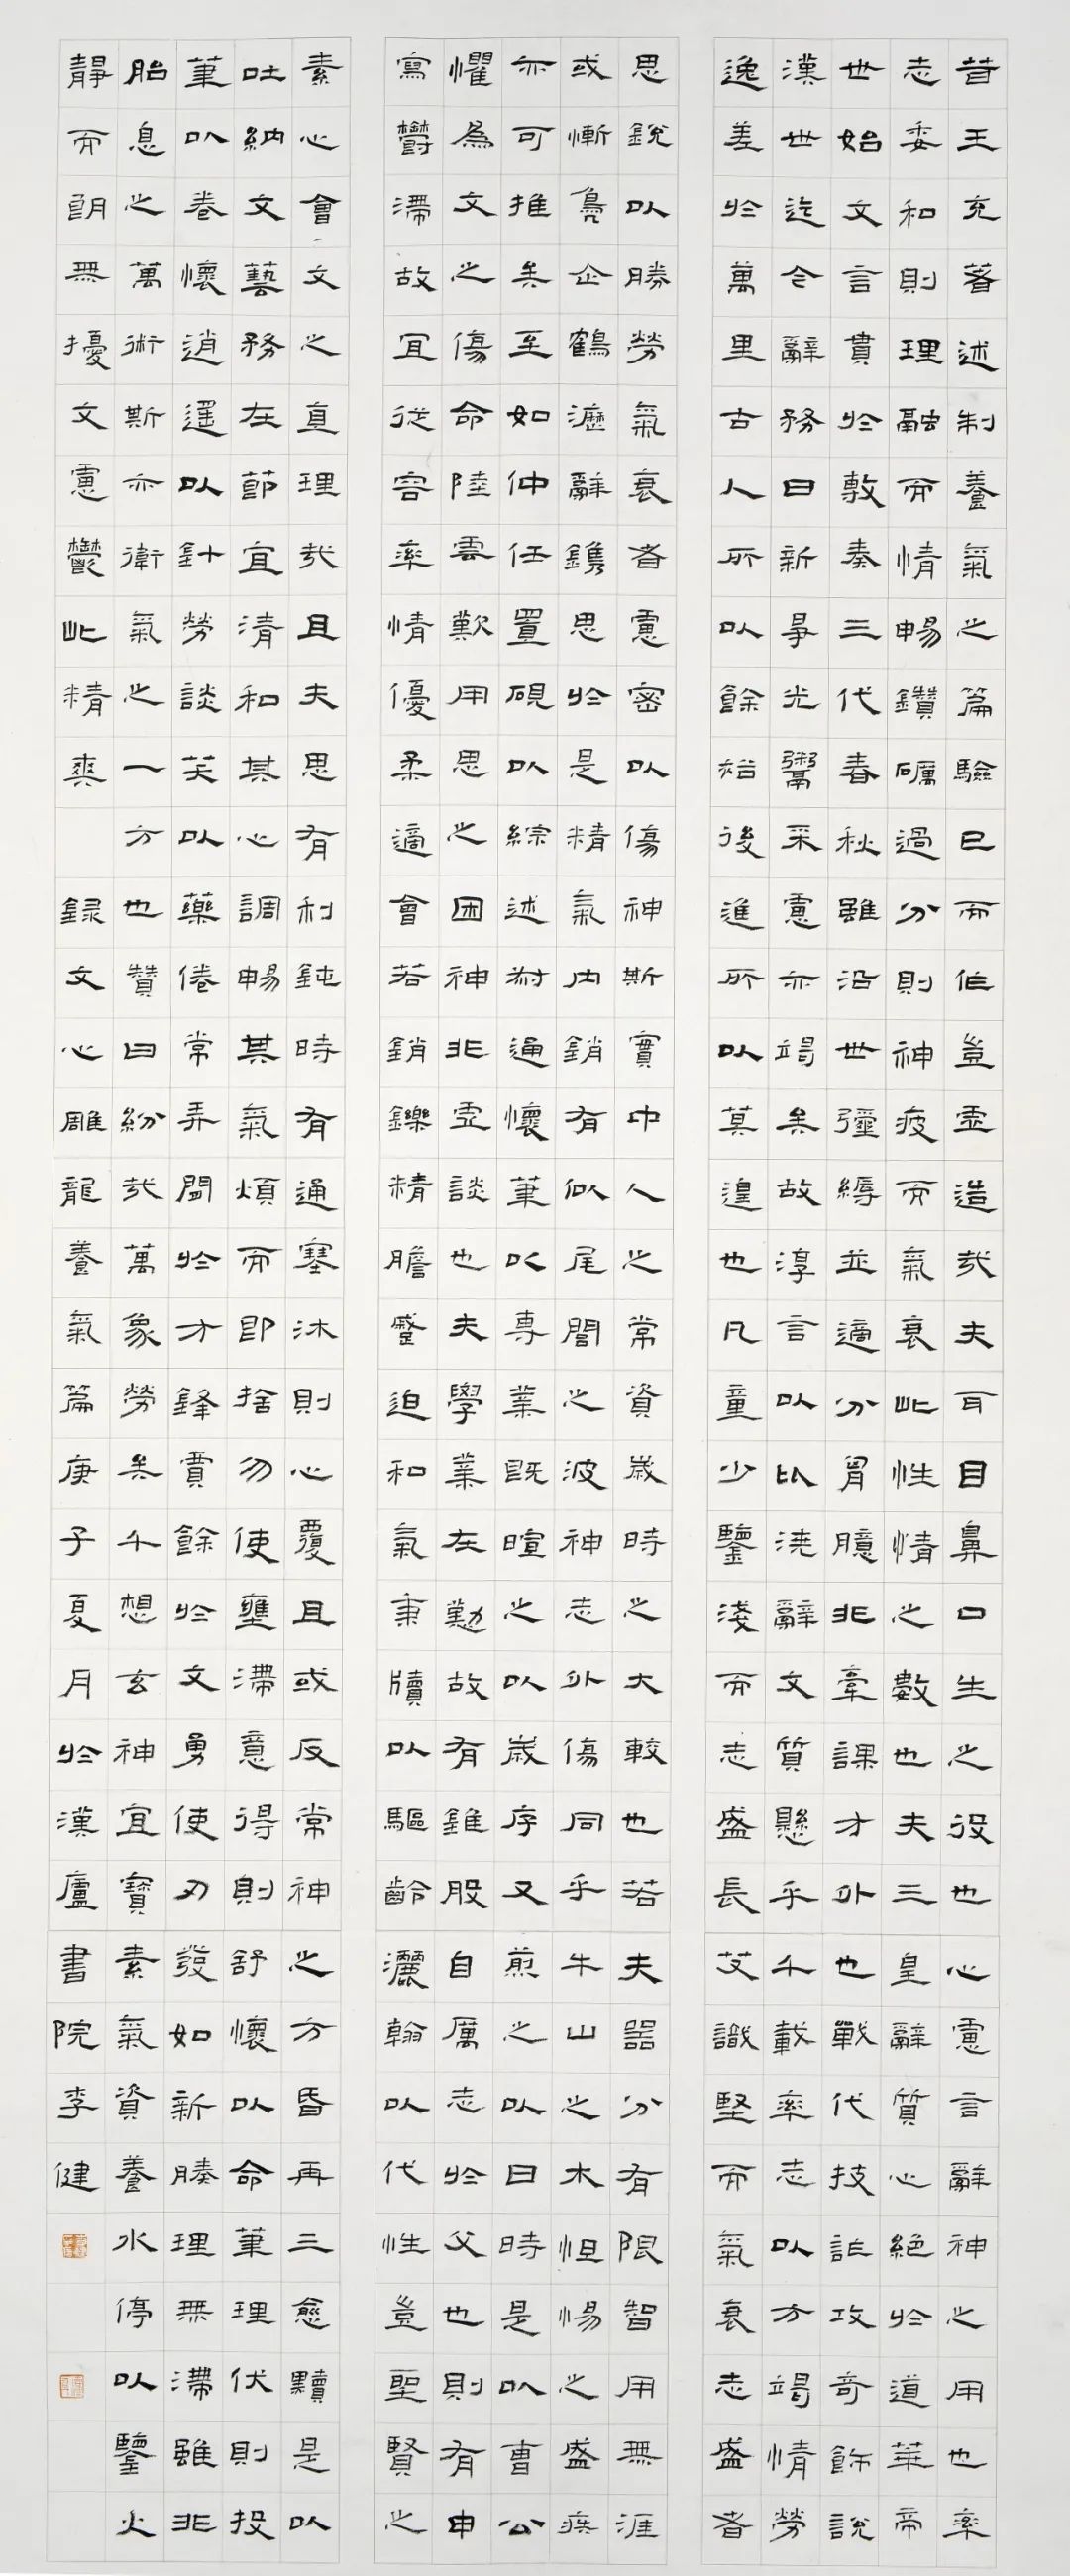 昔王充著述制養氣之篇驗已而作豈虛造哉夫耳目鼻口生之役也心慮言辭神之用也率
志委和則理融而情暢鑽礪過分則神疲而氣衰此性情之數也夫三皇辭質心絕於道華帝
世始文言貴於敷奏三代春秋雖沿世彌縟並適分胷臆非牽課才外也戰代技詐攻奇飾說
漢世迄今辭務日新爭光鬻采慮亦竭矣故淳言以比澆辭文質懸乎千載率志以方竭情勞
逸差於萬里古人所以餘裕後進所以莫遑也凡童少鑒淺而志盛長艾識堅而氣衰志盛者
思銳以勝勞氣衰者慮密以傷神斯實中人之常資歲時之大較也若夫器分有限智用無涯
或慚鳧企鶴瀝辭鐫思於是精氣內銷有似尾閭之波神志外傷同乎牛山之木怛惕之盛疾
亦可推矣至如仲任置硯以綜述叔通懷筆以專業既暄之以歲序又煎之以日時是以曹公
懼為文之傷命陸雲歎用思之困神非虛談也夫學業在勤故有錐股自厲志於父也則有申
寫鬱滯故宜從容率情優柔適會若銷鑠精膽蹙迫和氣秉牘以驅齡灑翰以代性豈聖賢之
素心會文之直理哉且夫思有利鈍時有通塞沐則心覆且或反常神之方昏再三愈黷是以
吐納文藝務在節宜清和其心調暢其氣煩而即捨勿使壅滯意得則舒懷以命筆理伏則投
筆以卷懷逍遙以針勞談笑以藥倦常弄閑於才鋒賈餘於文勇使刃發如新腠理無滯雖非
胎息之萬術斯亦衛氣之一方也贊曰紛哉萬象勞矣千想玄神宜寶素氣資養水停以鑒火
靜而朗無擾文慮鬱此精爽 錄文心雕龍養氣篇庚子夏月於漢廬書院李健